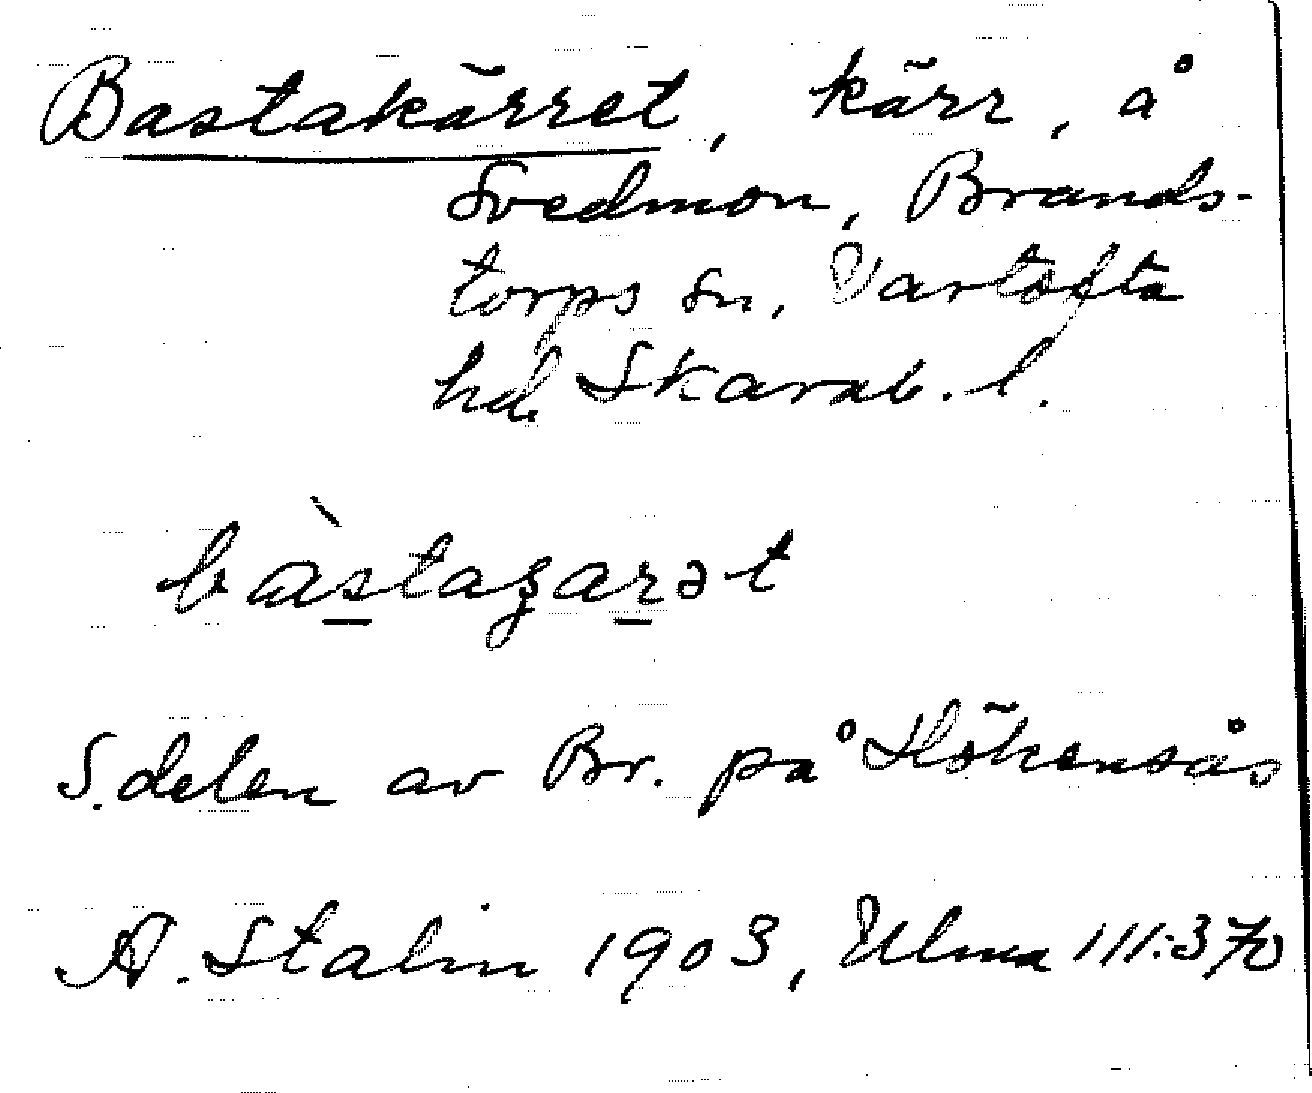 Bastakärret, kärr, å
Svedmon, Brands-
torps sn, Vartofta
hd. Skarab. l.
bàstagarət
S. delen av Br. på Hökensås
A. Stalin 1903, Ulma 111:370